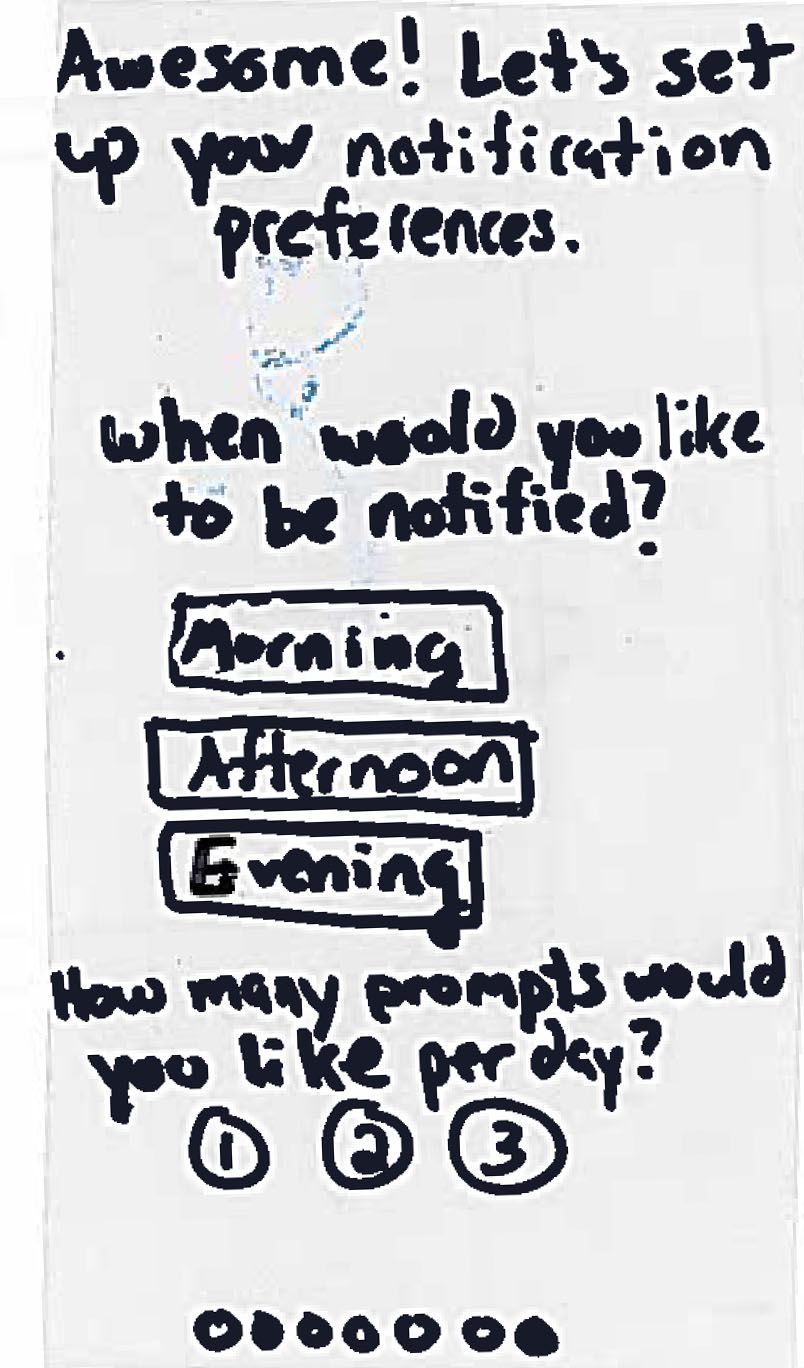 Awesome! Let's set
up your notification
preferences.
when would you like
to be notified?
Morning
Afternoon
Evening
How many prompts would
you like per day?
1 2 3